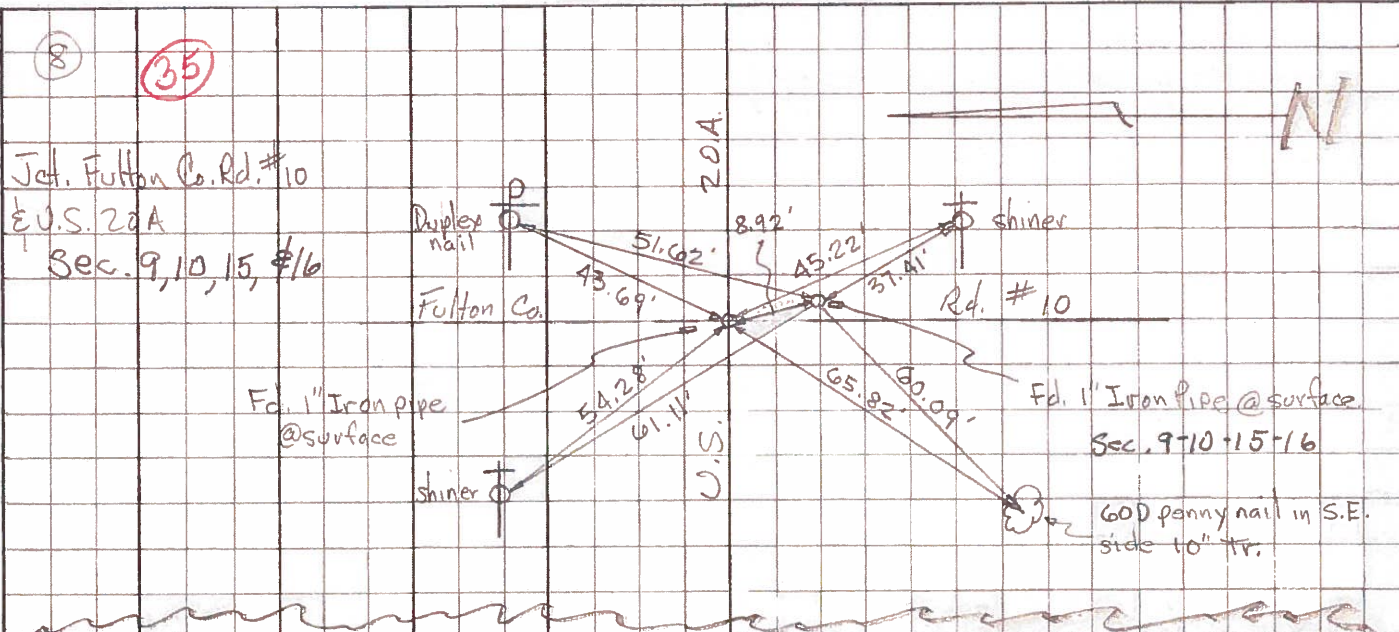 8
35
N
Jct. Fulton Co. Rd. #10
& U.S. 20A
Sec. 9, 10, 15, & 16
20A.
Duplex
nail
8.92'
shiner
51.62'
45.22'
43.69'
37.41'
Fulton Co.
Rd. #10
Fd. 1" Iron pipe
@surface
54.28'
61.11'
65.82'
60.09'
Fd. 1" Iron Pipe @ surface.
Sec. 9-10-15-16
U.S.
shiner
60D penny nail in S.E.
side 10" Tr.